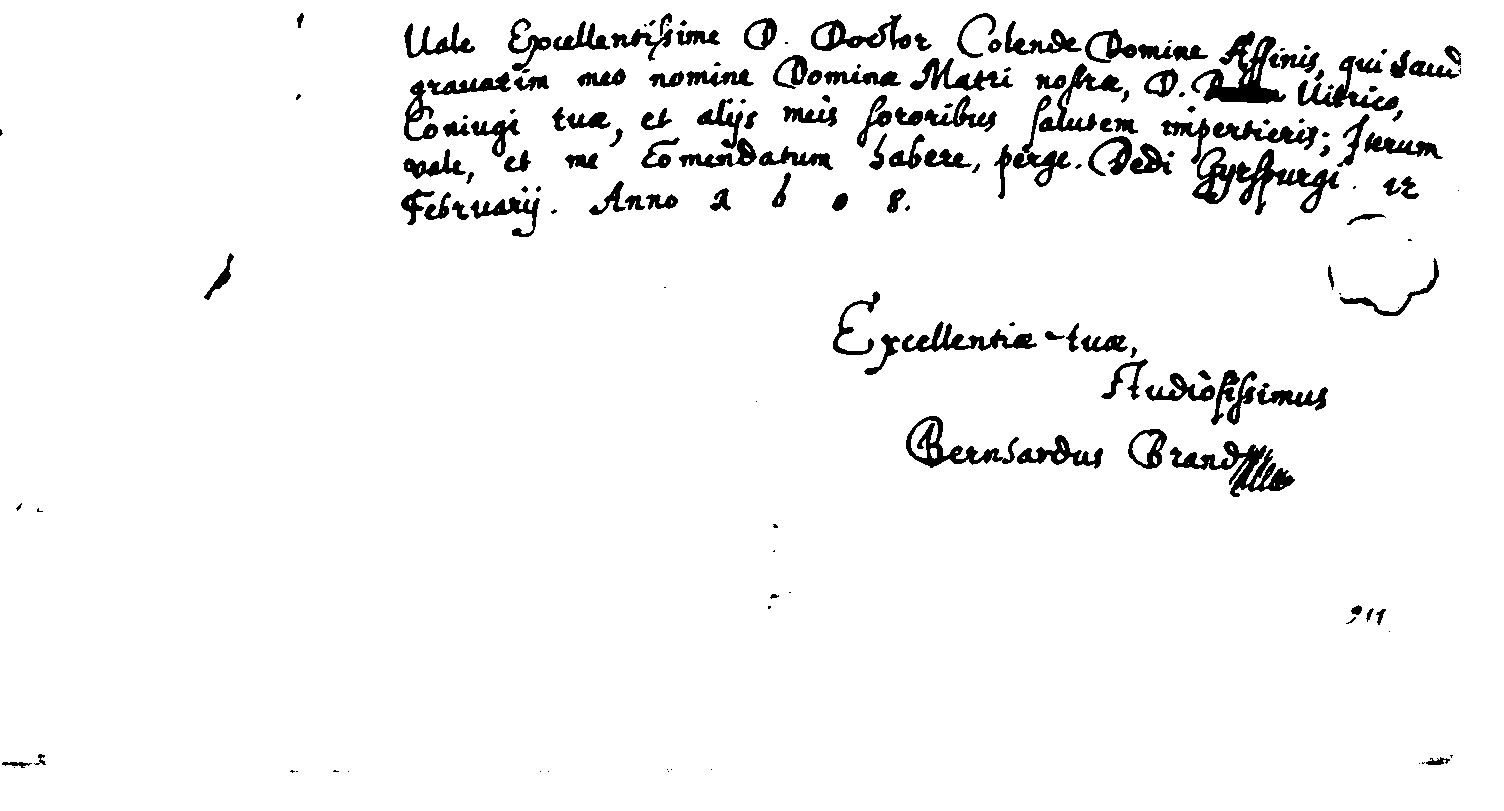 Uale Excellentissime D. Doctor Colende Domine Affinis, qui haud
grauatim meo nomine Dominæ Matri nostræ, D. Uitrico,
Coniugi tuæ, et alijs meis sororibus salutem impertieris; Iterum
vale, et me Comendatum habere, perge. Dedi Gyrspurgi. 12
Februarij. Anno 1 6 0 8.
Excellentiæ tuæ,
studiosissimus
Bernhardus Brand
911